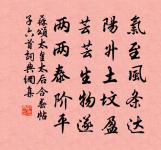 氣至風条达
陽升土坟盈
芸芸生物遂
兩兩泰阶平
蘇頌太皇太后合春帖
子六首詞典網集